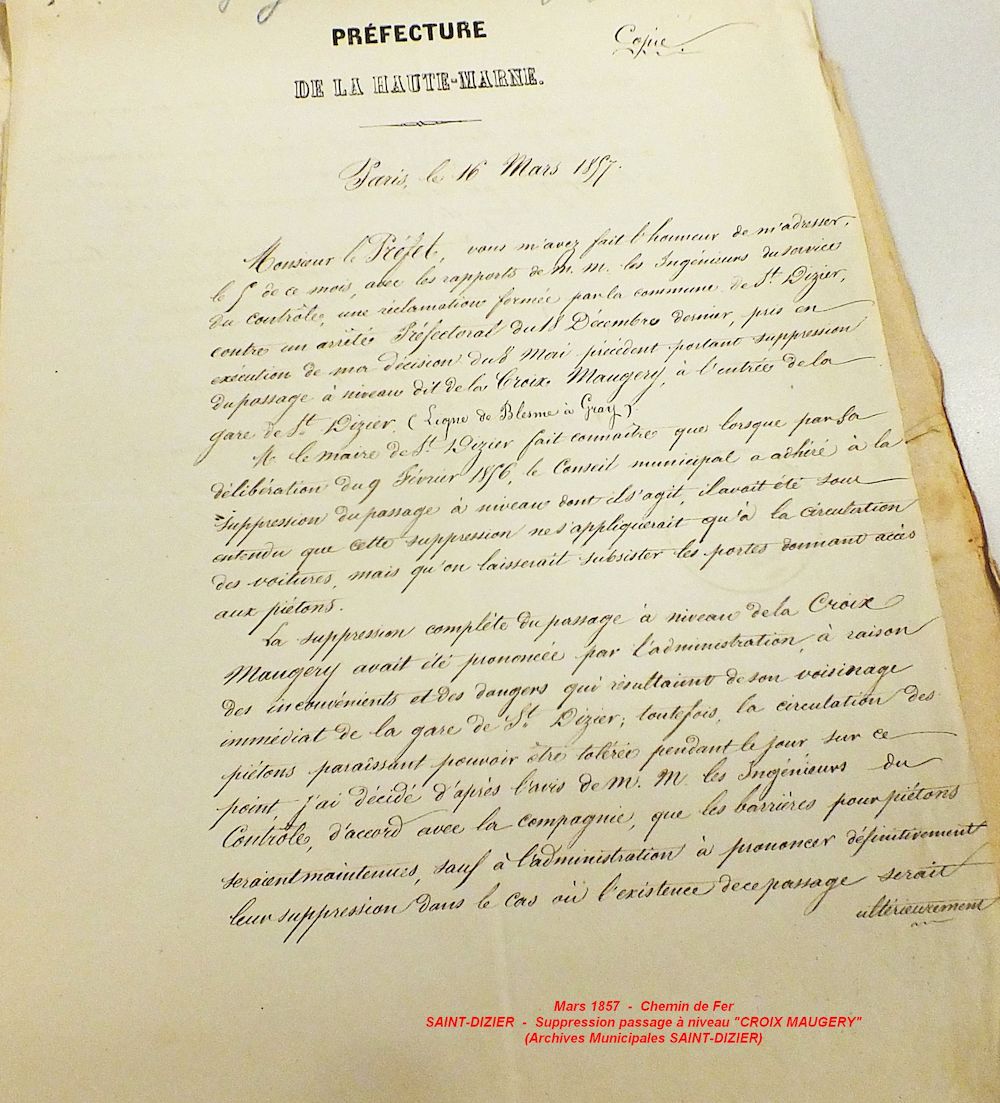 PRÉFECTURE
Copie.
DE LA HAUTE-MARNE.
Paris, le 16 Mars 1857.
Monsieur le Préfet, vous m'avez fait l'honneur de m'adresser,
le 5 de ce mois, avec les rapports de M. M. les Ingénieurs du service
du contrôle, une réclamation formée par la commune de St. Dizier,
contre un arrêté Préfectoral du 18 Décembre dernier, pris en
exécution de ma décision du 8 Mai précédent portant suppression
du passage à niveau dit de la Croix Maugery, à l'entrée de la
gare de St. Dizier. (Ligne de Blesme à Gray)
M. le maire de St. Dizier fait connaître que lorsque par sa
délibération du 9 Février 1856, le Conseil municipal a adhéré à la
suppression du passage à niveau dont il s'agit, il avait été sous
entendu que cette suppression ne s'appliquerait qu'à la circulation
des voitures, mais qu'on laisserait subsister les portes donnant accès
aux piétons.
La suppression complète du passage à niveau de la Croix
Maugery avait été prononcée par l'administration, à raison
des inconvénients et des dangers qui résultaient de son voisinage
immédiat de la gare de St. Dizier; toutefois, la circulation des
piétons paraîssant pouvoir être tolérée pendant le jour sur ce
point, j'ai décidé d'après l'avis de M. M. les Ingénieurs du
Contrôle, d'accord avec la compagnie, que les barrières pour piétons
seraient maintenues, sauf à l'administration à prononcer définitivement
leur suppression dans le cas où l'existence de ce passage serait
ultérieurement
Mars 1857 - Chemin de Fer
SAINT-DIZIER - Suppression passage à niveau "CROIX MAUGERY"
(Archives Municipales SAINT-DIZIER)